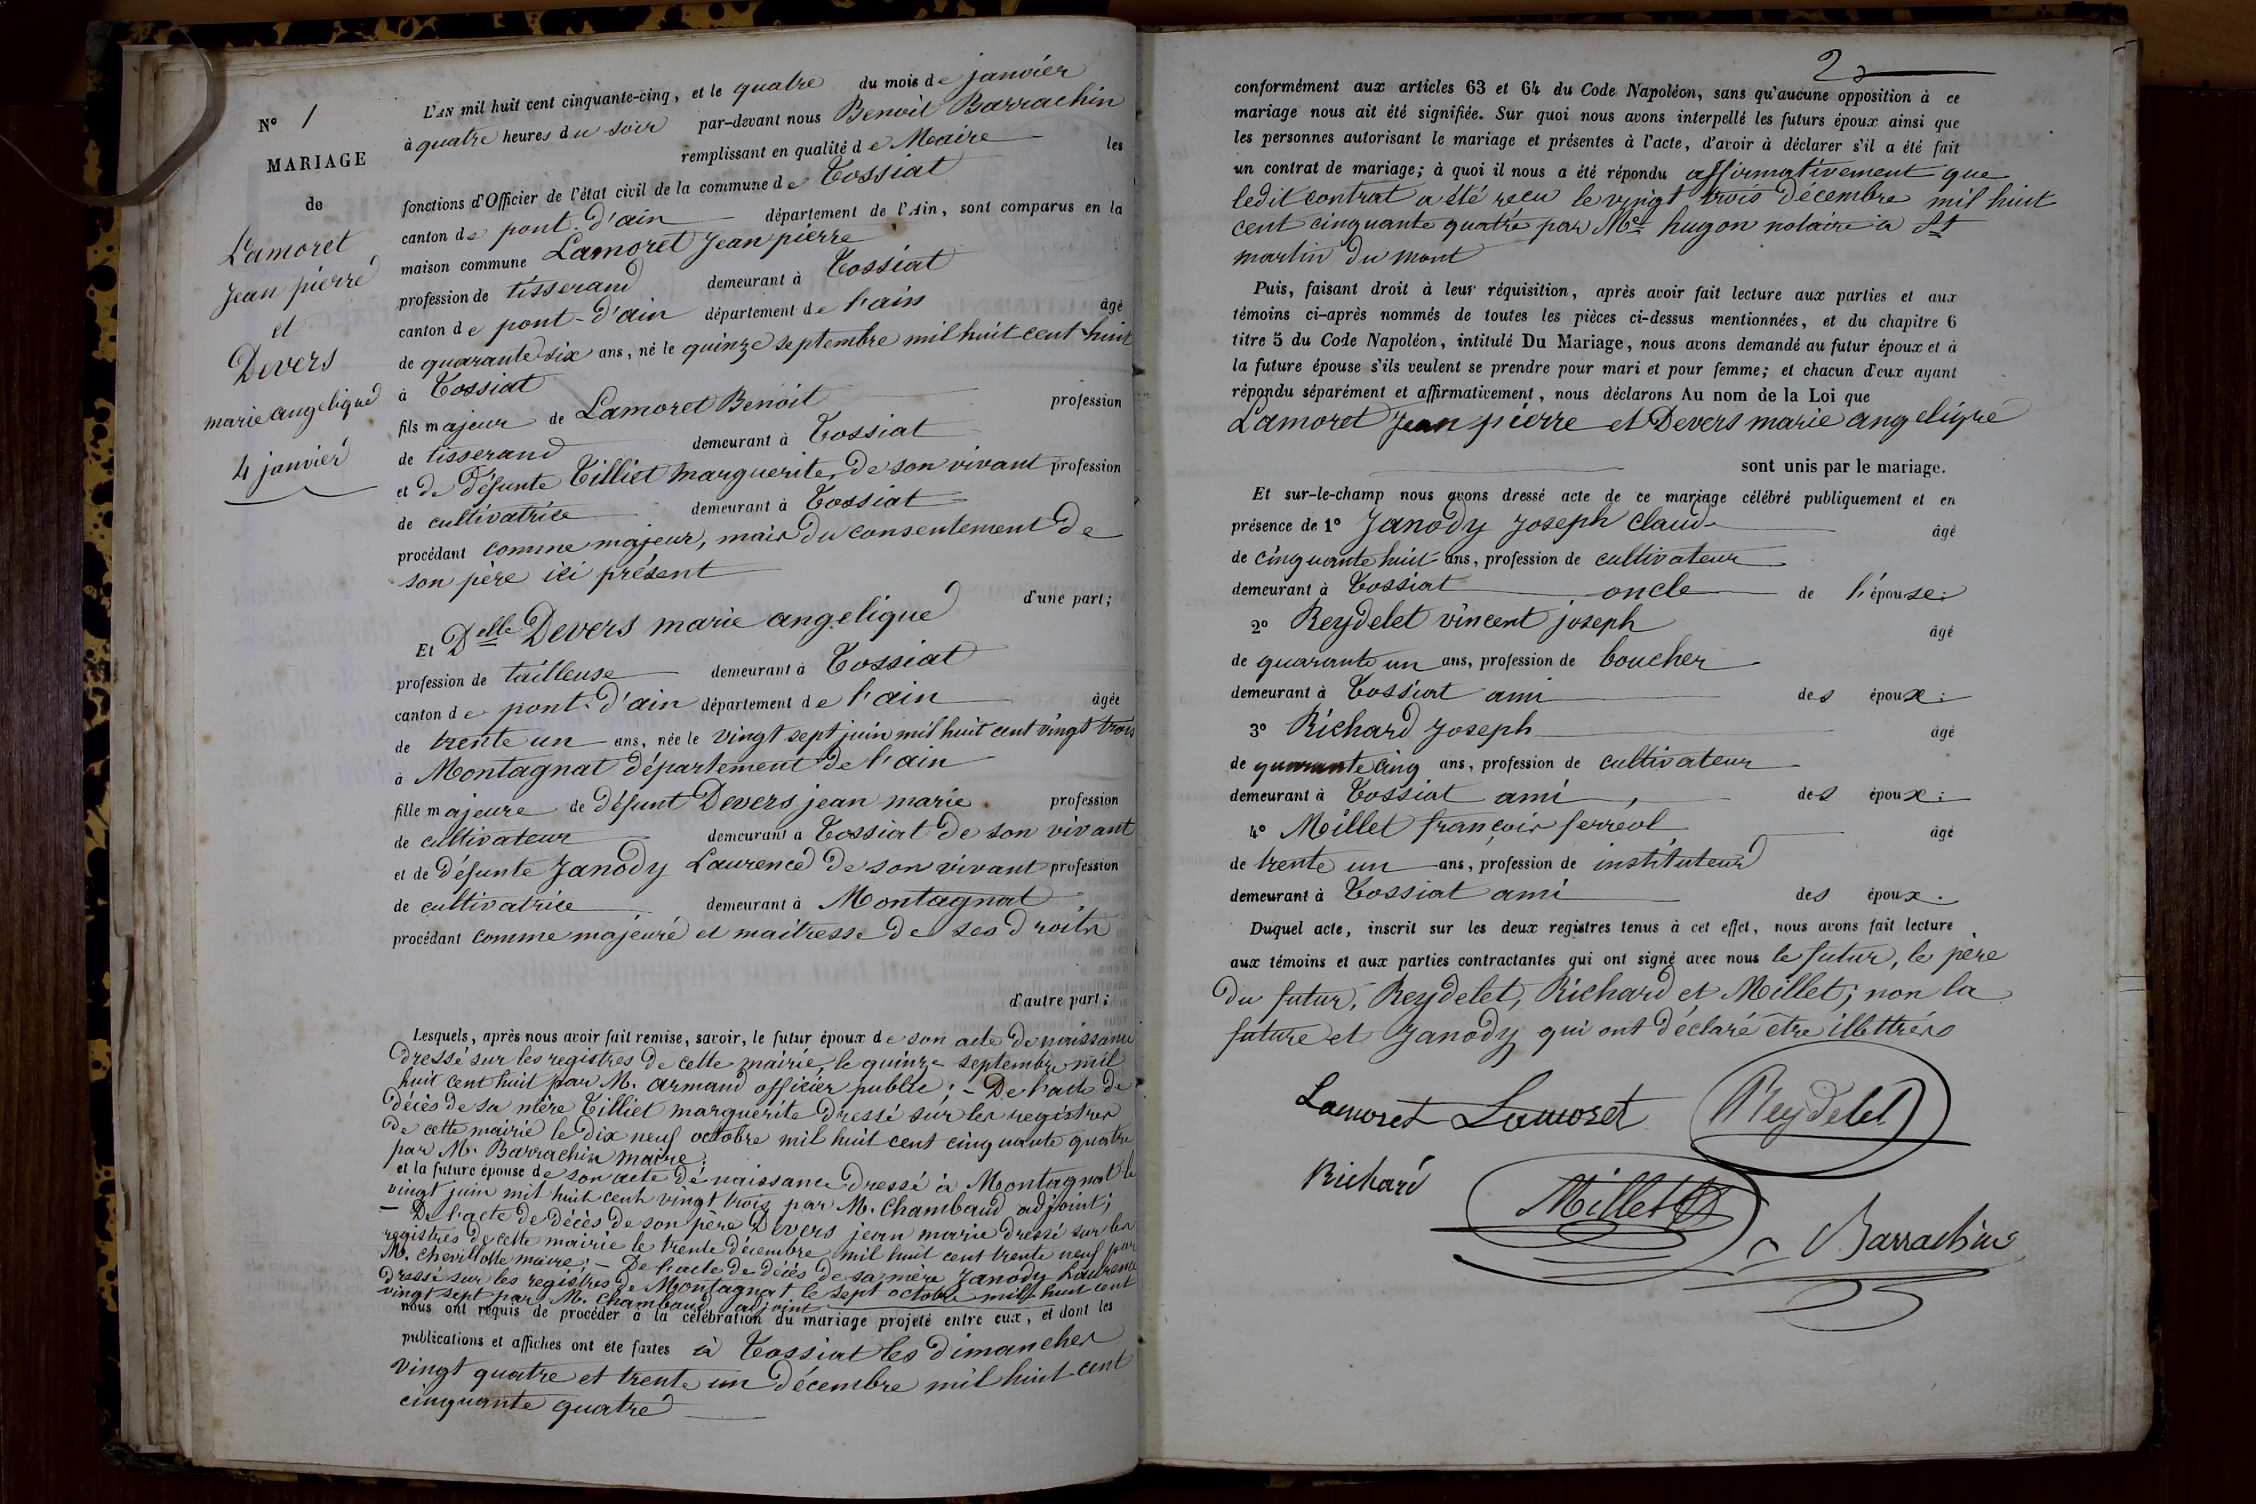 N° 1
MARIAGE
de
Lamoret
Jean pierre
et
Devers
marie angelique
4 janvier
L'AN mil huit cent cinquante-cinq, et le quatre du mois de janvier
à quatre heures du soir par-devant nous Benoit Barrachin
remplissant en qualité de Maire les
fonctions d'Officier de l'état civil de la commune de Tossiat
canton de pont-d'ain département de l'Ain, sont comparus en la
maison commune Lamoret Jean pierre
profession de tisserand demeurant à Tossiat
canton de pont-d'ain département de l'ain âgé
de quarante six ans, né le quinze septembre mil huit cent huit
à Tossiat
fils majeur de Lamoret Benoit profession
de tisserand demeurant à Tossiat
et de défunte Tilliet marguerite, de son vivant profession
de cultivatrice demeurant à Tossiat
procédant comme majeur, mais du consentement de
son père ici présent
d'une part;
Et Delle Devers marie angelique
profession de tailleuse demeurant à Tossiat
canton de pont-d'ain département de l'ain âgée
de trente un ans, née le vingt sept juin mil huit cent vingt trois
à Montagnat département de l'ain
fille majeure de défunt Devers jean marie profession
de cultivateur demeurant à Tossiat de son vivant
et de défunte Janody Laurence de son vivant profession
de cultivatrice demeurant à Montagnat
procédant comme majeure et maitresse de ses droits
d'autre part;
Lesquels, après nous avoir fait remise, savoir, le futur époux de son acte de naissance
dressé sur les registres de cette mairie, le quinze septembre mil
huit cent huit par M. Armand officier public; - De l'acte de
décès de sa mère Tilliet marguerite dressé sur les registres
de cette mairie le dix neuf octobre mil huit cent cinquante quatre
par M. Barrachin maire.
et la future épouse de son acte de naissance dressé à Montagnat le
vingt juin mil huit cent vingt trois par M. Chambaud adjoint;
- De l'acte de décès de son père Devers jean marie dressé sur les
registres de cette mairie le trente décembre mil huit cent trente neuf par
M. Chevillotte maire; - De l'acte de décès de sa mère Janody Laurence
dressé sur les registres de Montagnat le sept octobre mil huit cent
vingt sept par M. Chambaud adjoint
nous ont requis de procéder à la célébration du mariage projeté entre eux, et dont les
publications et affiches ont été faites à Tossiat les dimanches
vingt quatre et trente un décembre mil huit cent
cinquante quatre
2
conformément aux articles 63 et 64 du Code Napoléon, sans qu'aucune opposition à ce
mariage nous ait été signifiée. Sur quoi nous avons interpellé les futurs époux ainsi que
les personnes autorisant le mariage et présentes à l'acte, d'avoir à déclarer s'il a été fait
un contrat de mariage; à quoi il nous a été répondu affirmativement que
ledit contrat a été reçu le vingt trois décembre mil huit
cent cinquante quatre par Me hugon notaire à St
martin du mont
Puis, faisant droit à leur réquisition, après avoir fait lecture aux parties et aux
témoins ci-après nommés de toutes les pièces ci-dessus mentionnées, et du chapitre 6
titre 5 du Code Napoléon, intitulé Du Mariage, nous avons demandé au futur époux et à
la future épouse s'ils veulent se prendre pour mari et pour femme; et chacun d'eux ayant
répondu séparément et affirmativement, nous déclarons Au nom de la Loi que
Lamoret Jean pierre et Devers marie angelique
sont unis par le mariage.
Et sur-le-champ nous avons dressé acte de ce mariage célébré publiquement et en
présence de 1° Janody Joseph Claude âgé
de cinquante huit ans, profession de cultivateur
demeurant à Tossiat oncle de l'épouse;
2° Reydelet vincent joseph âgé
de quarante un ans, profession de boucher
demeurant à Tossiat ami des époux;
3° Richard Joseph âgé
de quarante cinq ans, profession de cultivateur
demeurant à Tossiat ami des époux;
4° Millet françois ferreol âgé
de trente un ans, profession de instituteur
demeurant à Tossiat ami des époux.
Duquel acte, inscrit sur les deux registres tenus à cet effet, nous avons fait lecture
aux témoins et aux parties contractantes qui ont signé avec nous le futur, le père
du futur, Reydelet, Richard et Millet; non la
future et Janody qui ont déclaré être illettrés
Lamoret Lamoret Reydelet
Richard
Millet
Barrachin